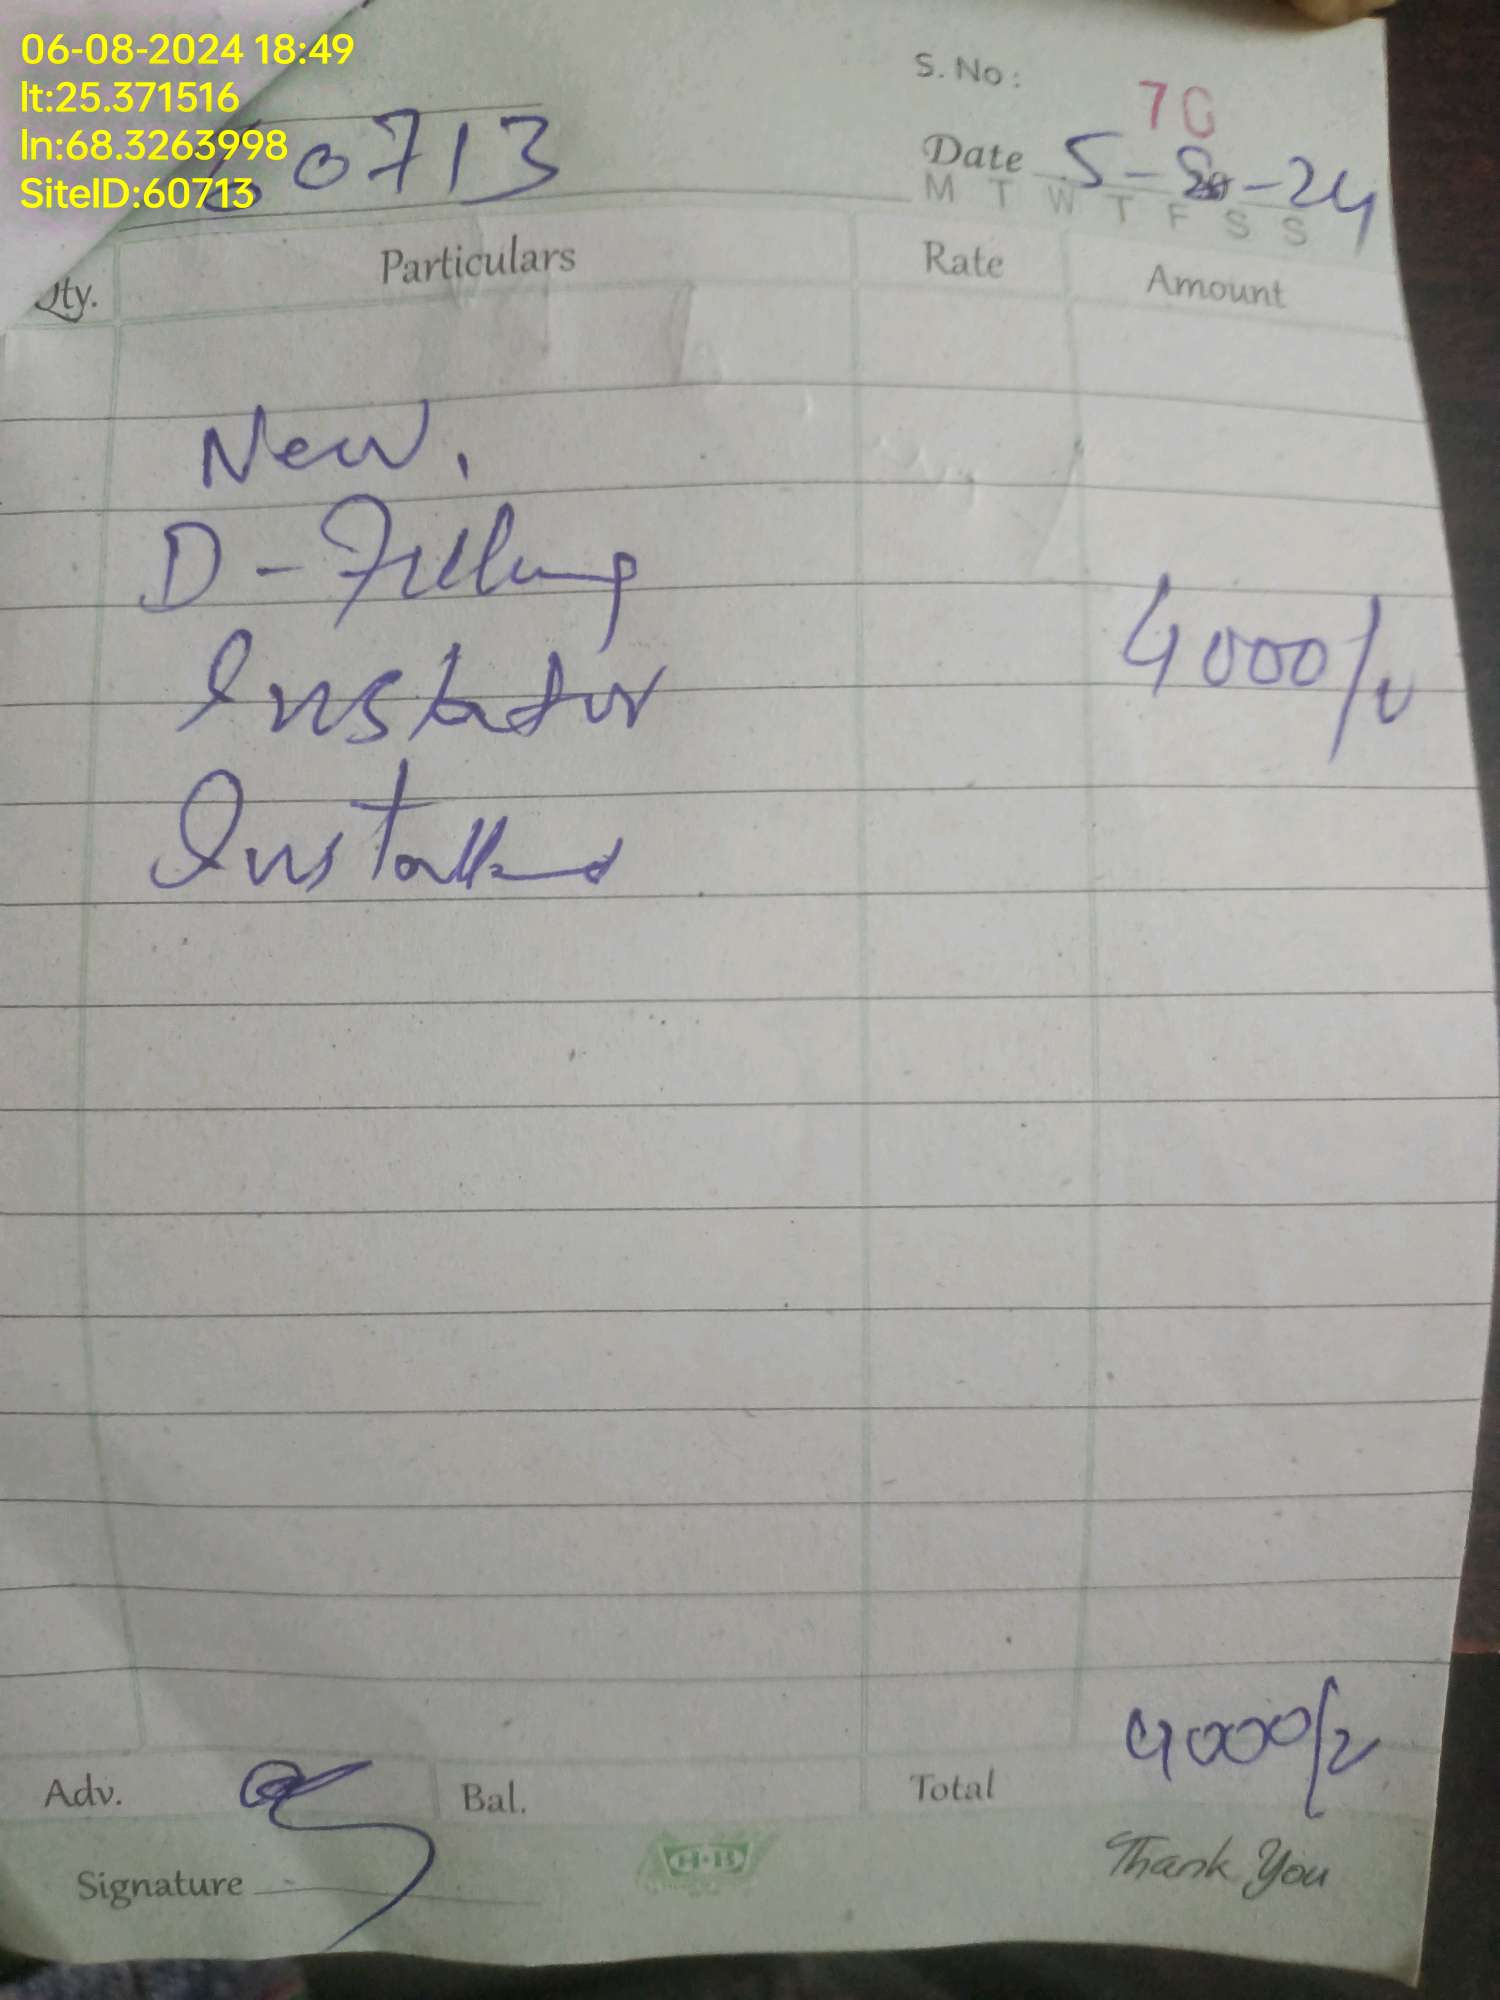 06-08-2024 18:49
lt:25.371516
ln:68.3263998
SiteID:60713
S. No:
70
60713
Date 5-8-24
M T W T F S S
Qty. Particulars Rate Amount
New.
D-Filling
4000/-
Installed
4000/-
Adv. Bal. Total
Signature
H·B
Thank You